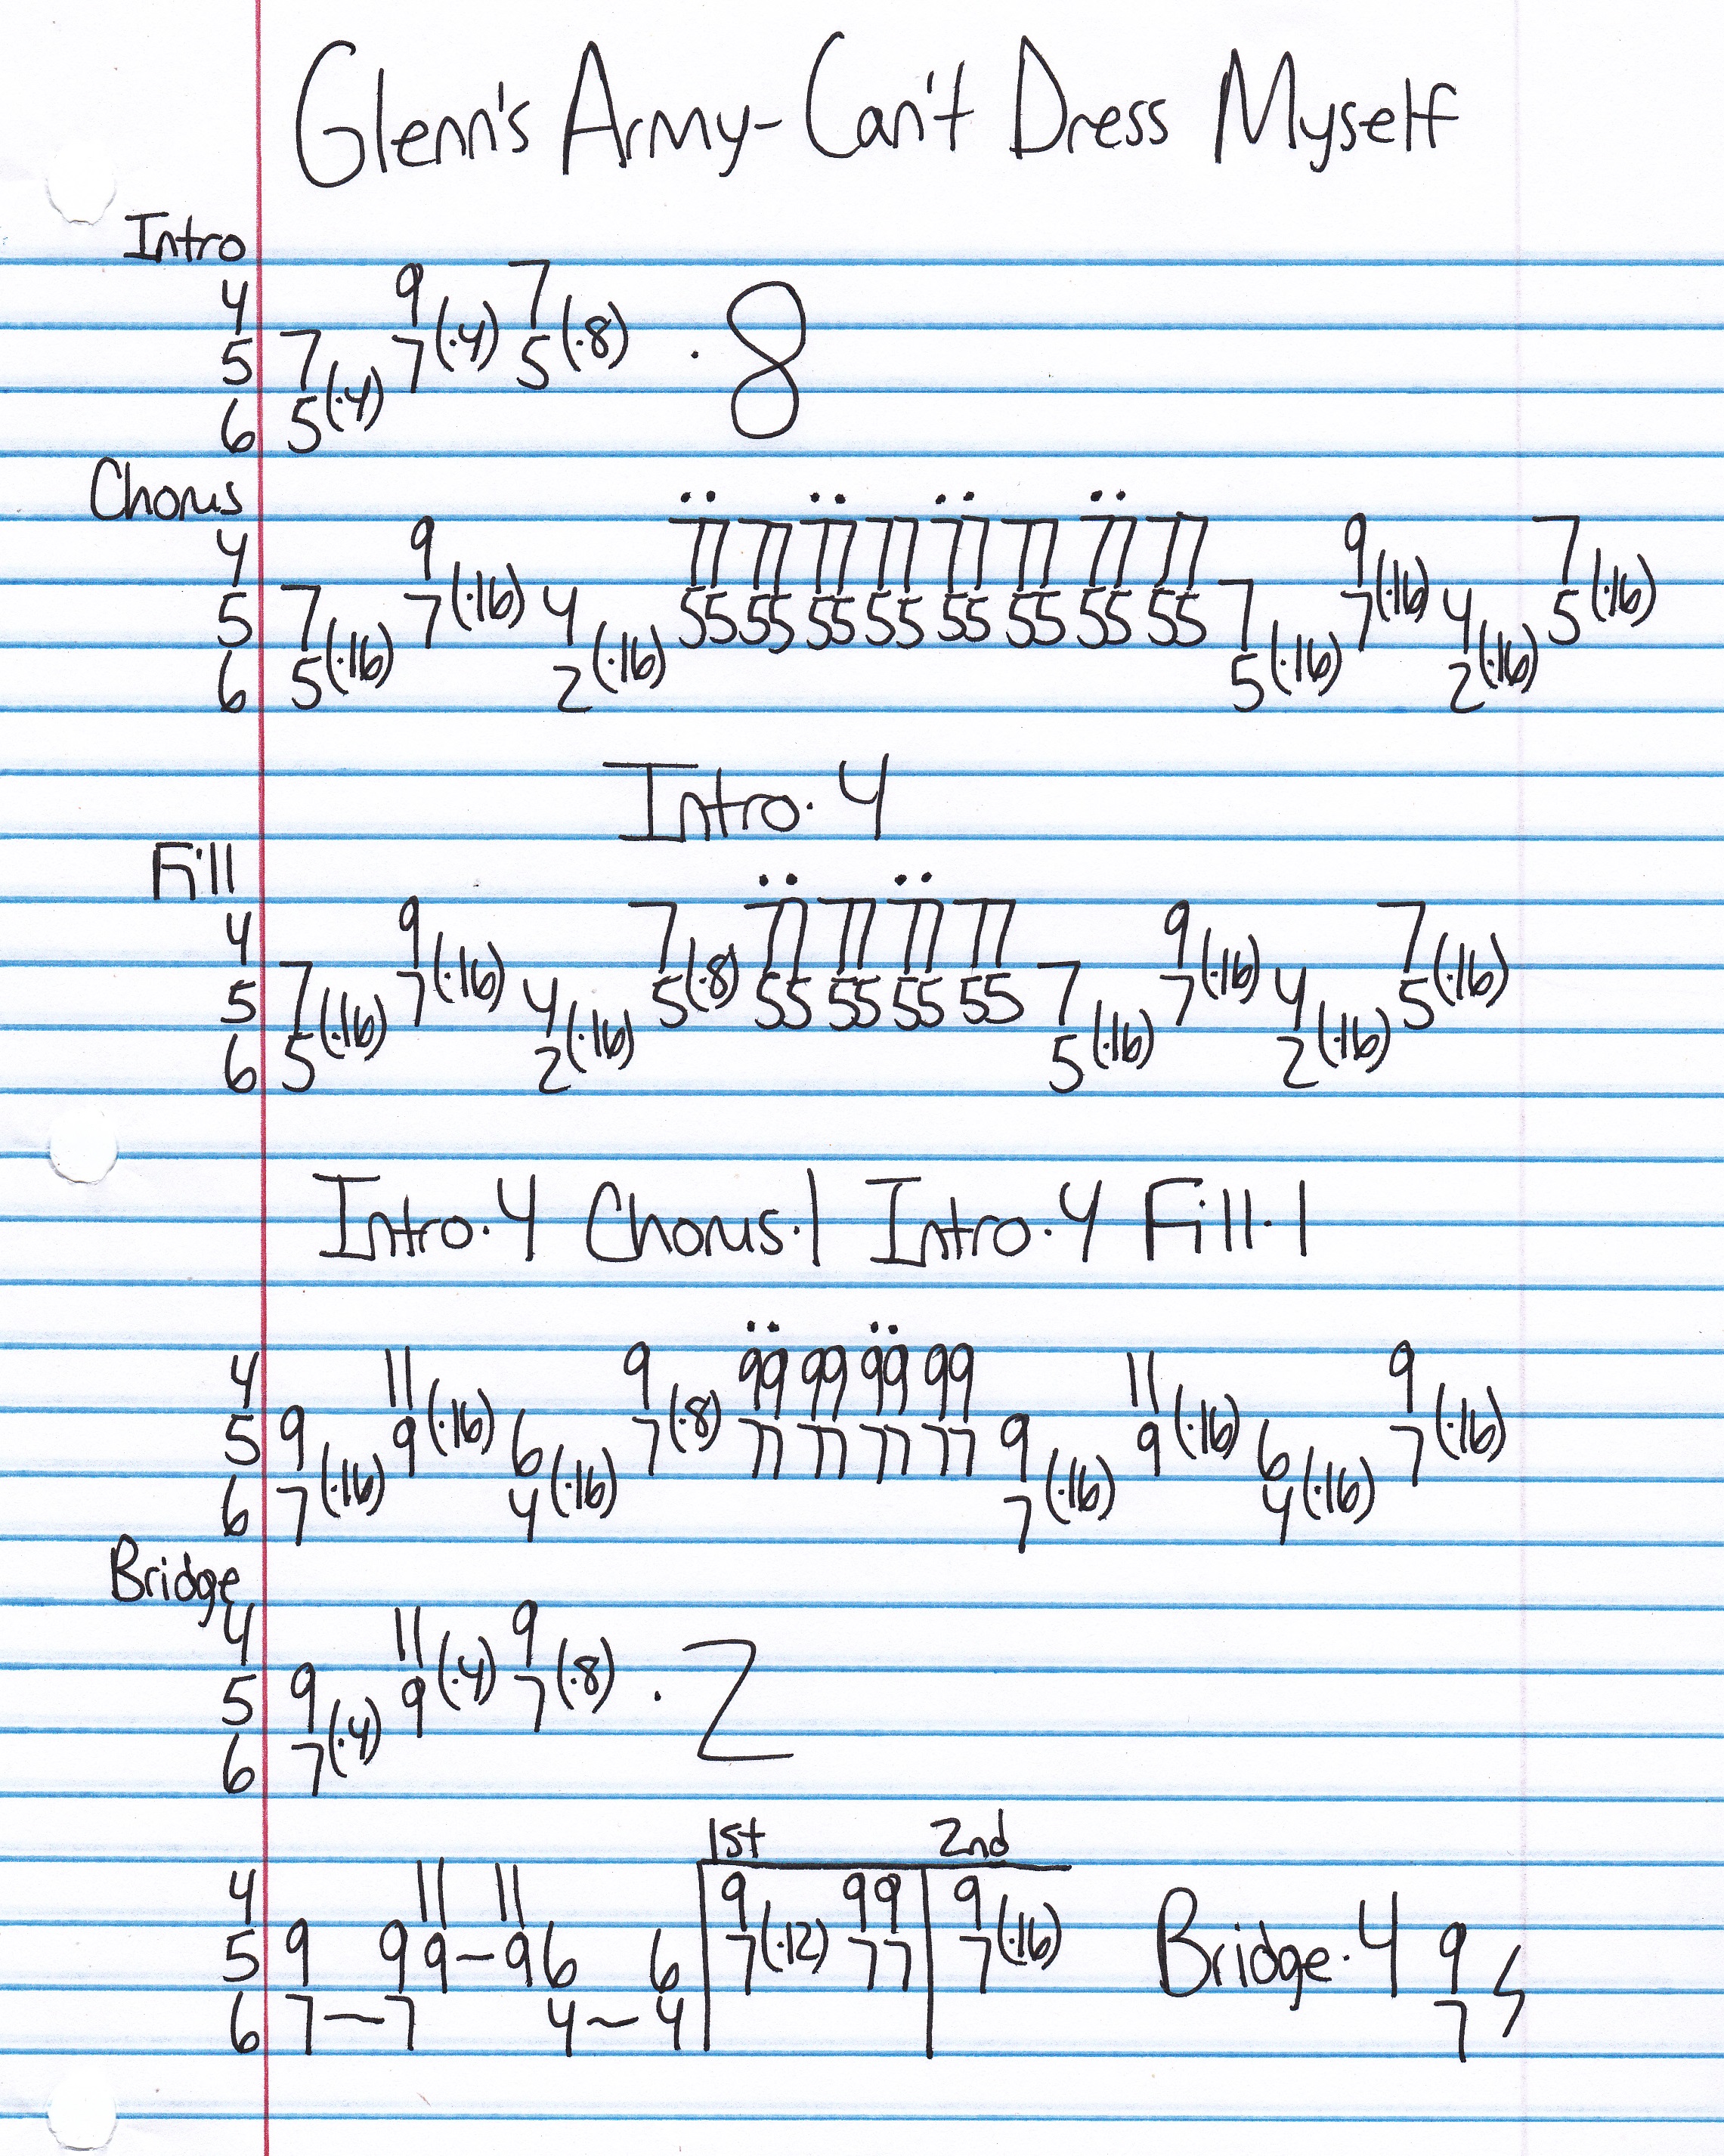 Glenn's Army - Can't Dress Myself
Intro
4 9 7
5 7 7(·4) 5(·8) · 8
6 5(·4)
Chorus
4 9 77 77 77 77 77 77 77 77 9 7
5 7 7(·16) 4 55 55 55 55 55 55 55 55 7 7(·16) 4 5(·16)
6 5(·16) 2(·16) 5(·16) 2(·16)
Intro·4
Fill
4 9 7 77 77 77 77 9 7
5 7 7(·16) 4 5(·8) 55 55 55 55 7 7(·16) 4 5(·16)
6 5(·16) 2(·16) 5(·16) 2(·16)
Intro·4 Chorus·1 Intro·4 Fill·1
4 11 9 99 99 99 99 11 9
5 9 9(·16) 6 7(·8) 77 77 77 77 9 9(·16) 6 7(·16)
6 7(·16) 4(·16) 7(·16) 4(·16)
Bridge
4 11 9
5 9 9(·4) 7(·8) · 2
6 7(·4)
1st 2nd
4 11 11 9 99 9
5 9 9 9-9 6 6 7(·12) 77 7(·16) Bridge·4 9
6 7-7 4~4 7